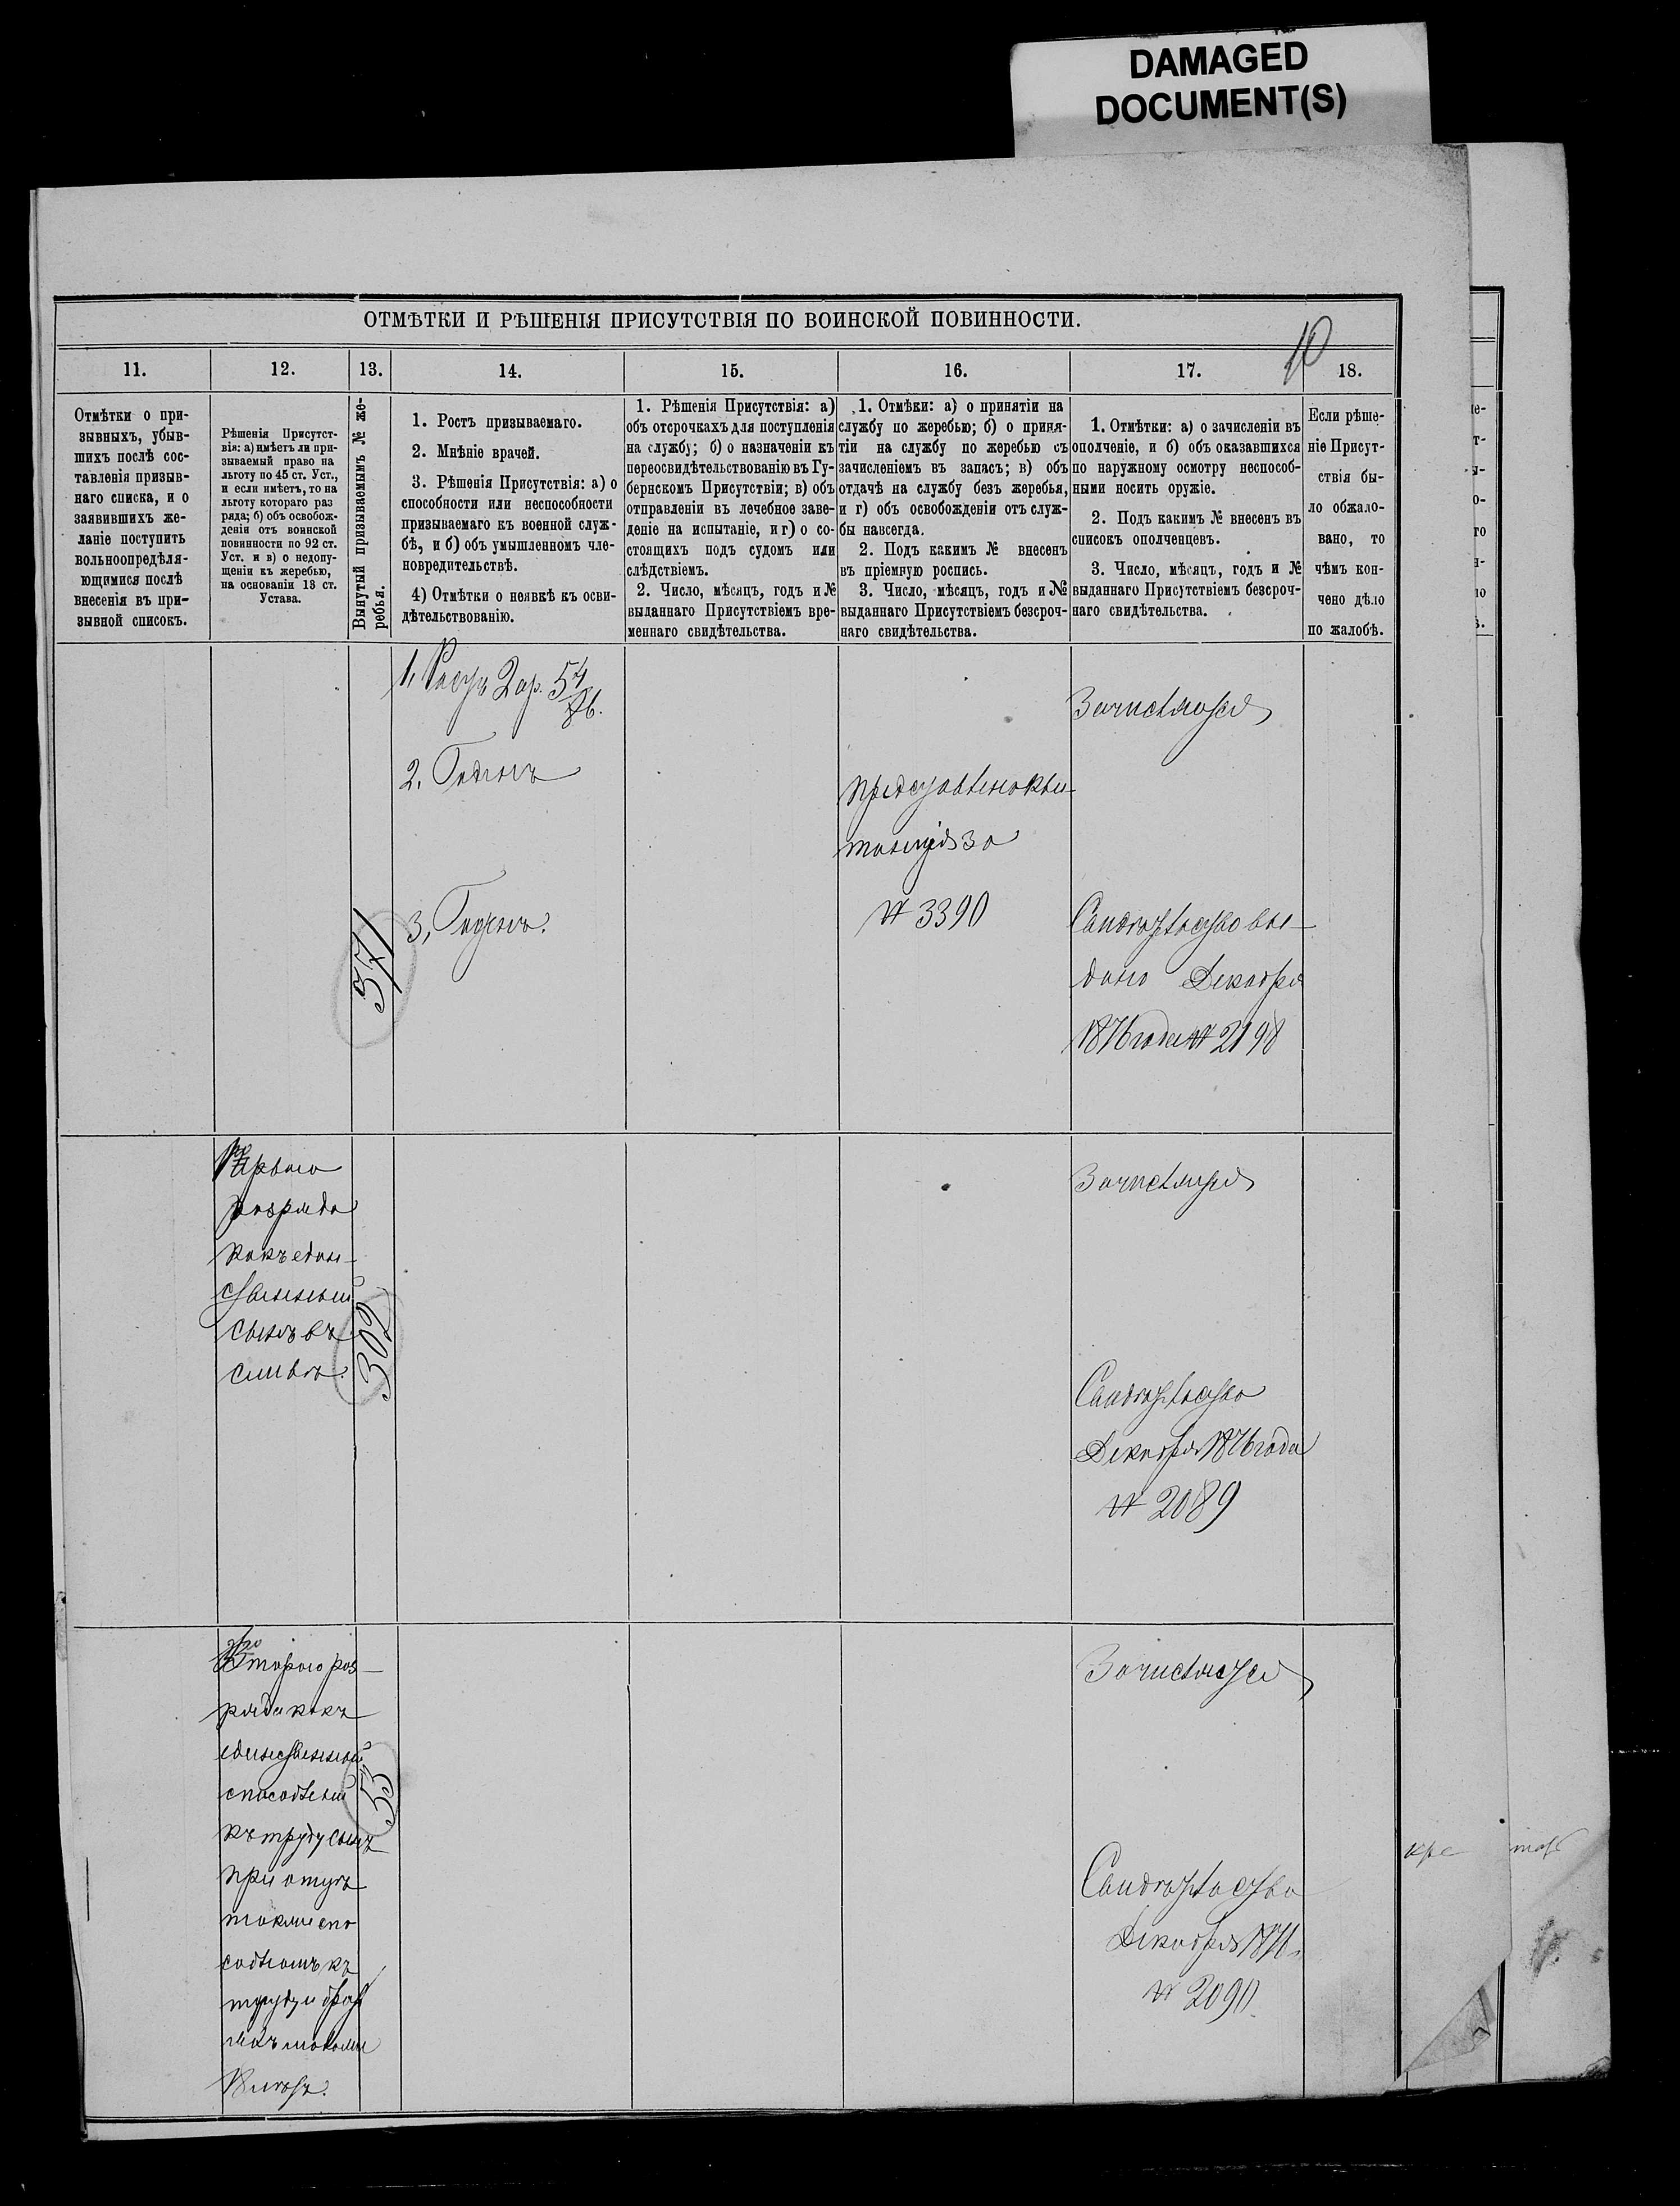 DAMAGED
DOCUMENT(S)
ОТМѢТКИ И РѢШЕНІЯ ПРИСУТСТВІЯ ПО ВОИНСКОЙ ПОВИННОСТИ.
10
11.
12.
13.
14.
15.
16.
17.
18.
Отмѣтки о при-
зывныхъ, убыв-
шихъ послѣ сос-
тавленія призыв-
наго списка, и о
заявившихъ же-
ланіе поступить
вольноопредѣля-
ющимися послѣ
внесенія въ при-
зывной списокъ.
Рѣшенія Присутст-
вія: а) имѣетъ ли при-
зываемый право на
льготу по 45 ст. Уст.,
и если имѣетъ, то на
льготу котораго раз
ряда; б) объ освобож-
деніи отъ воинской
повинности по 92 ст.
Уст. и в) о недопу-
щеніи къ жеребью,
на основаніи 13 ст.
Устава.
Вынутый призываемымъ № же-
ребья.
1. Ростъ призываемаго.
2. Мнѣніе врачей.
3. Рѣшенія Присутствія: а) о
способности или неспособности
призываемаго къ военной служ-
бѣ, и б) объ умышленномъ чле-
новредительствѣ.
4) Отмѣтки о неявкѣ къ осви-
дѣтельствованію.
1. Рѣшенія Присутствія: а)
объ отсрочкахъ для поступленія
на службу; б) о назначеніи къ
переосвидѣтельствованію въ Гу-
бернскомъ Присутствіи; в) объ
отправленіи въ лечебное заве-
деніе на испытаніе, и г) о со-
стоящихъ подъ судомъ или
слѣдствіемъ.
2. Число, мѣсяцъ, годъ и №
выданнаго Присутствіемъ вре-
меннаго свидѣтельства.
1. Отмѣки: а) о принятіи на
службу по жеребью; б) о приня-
тіи на службу по жеребью съ
зачисленіемъ въ запасъ; в) объ
отдачѣ на службу безъ жеребья,
и г) объ освобожденіи отъ служ-
бы навсегда.
2. Подъ какимъ № внесенъ
въ пріемную роспись.
3. Число, мѣсяцъ, годъ и №
выданнаго Присутствіемъ безсроч-
наго свидѣтельства.
1. Отмѣтки: а) о зачисленіи въ
ополченіе, и б) объ оказавшихся
по наружному осмотру неспособ-
ными носить оружіе.
2. Подъ какимъ № внесенъ въ
списокъ ополченцевъ.
3. Число, мѣсяцъ, годъ и №
выданнаго Присутствіемъ безсроч-
наго свидѣтельства.
Если рѣше-
ніе Присут-
ствія бы-
ло обжало-
вано, то
чѣмъ кон-
чено дѣло
по жалобѣ.
371
1, Ростъ 2 ар. 5 4/8 в.
2. Годенъ
3, Годенъ.
представлена кви-
танція за
№ 3390
Зачисляется
Свидѣтельство вы-
дано Декабря
1876 года № 2198
Перваго
разряда
какъ един-
ственный
сынъ въ
семьѣ.
302
Зачисляется
Свидѣтельство
Декабря 1876 года
№ 2089
Втораго раз-
ряда какъ
единственный
способный
къ труду сынъ
при отцѣ
также спо
собномъ къ
труду и
53
Зачисляется
Свидѣтельство
Декабря 1876
№ 2090